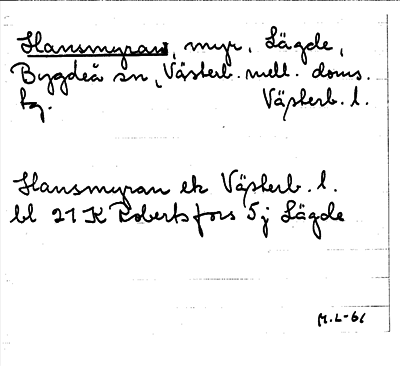 Hansmyran, myr, Lägde,
Bygdeå sn, Västerb. mell. doms.
tg. Västerb. l.
Hansmyran ek Västerb. l.
bl 21 K Robertsfors 5j Lägde
M.L-61